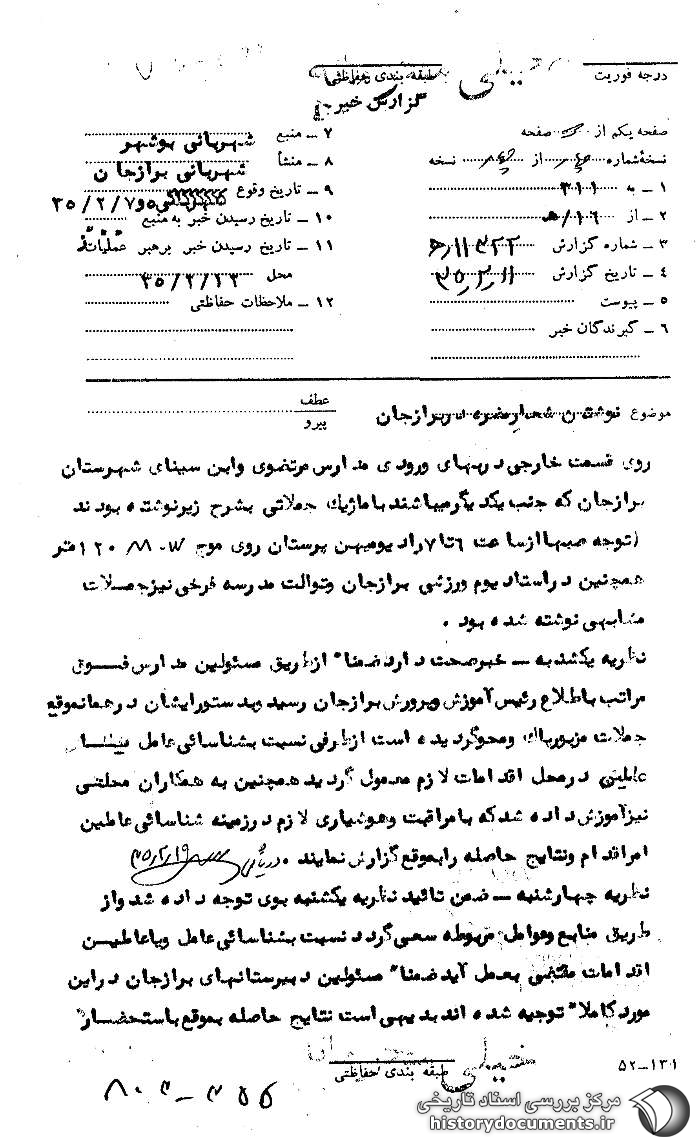 درجه فوریت
خیلی
طبقه بندی حفاظتی
گزارش خبر
صفحه یکم از صفحه
نسخهٔ شماره از نسخه
۱ – به ۳۱۱
۲ – از ۱۶/ هـ
۳ – شماره گزارش
۴ – تاریخ گزارش
۵ – پیوست
۶ – گیرندگان خبر
۷ – منبع شهربانی بوشهر
۸ – منشأ شهربانی برازجان
۹ – تاریخ وقوع ۳۵/۲/۷
۱۰ – تاریخ رسیدن خبر به منبع
۱۱ – تاریخ رسیدن خبر برهبر عملیات
محل ۳۵/۲/۱۳
۱۲ – ملاحظات حفاظتی
موضوع نوشتن شعار مضره در برازجان
عطف
پیرو
روی قسمت خارجی دربهای ورودی مدارس مرتضوی وابن سینای شهرستان
برازجان که جنب یکدیگر میباشند با ماژیک جملاتی بشرح زیر نوشته بودند
(توجه صبها از ساعت ۶ تا ۷ رادیو میهن پرستان روی موج متر
همچنین در استادیوم ورزشی برازجان وتوالت مدرسه فرخی نیز جملات
مشابهی نوشته شده بود .
نظریه یکشنبه – خبر صحت دارد ضمنا" از طریق مسئولین مدارس فوق
مراتب باطلاع رئیس آموزش وپرورش برازجان رسید وبدستور ایشان در همانموقع
جملات مزبور پاک ومحو گردیده است از طرفی نسبت بشناسائی عامل
عاملین در محل اقدامات لازم معمول گردید همچنین به همکاران محلی
نیز آموزش داده شد که با مراقبت وهوشیاری لازم در زمینه شناسائی عاملین
امر اقدام ونتایج حاصله را بموقع گزارش نمایند .
نظریه چهارشنبه – ضمن تائید نظریه یکشنبه بوی توجه داده شد واز
طریق منابع وعوامل مربوطه سعی گردد نسبت بشناسائی عامل ویا عاملین
اقدامات مقتضی بعمل آید ضمنا" مسئولین دبیرستانهای برازجان در این
مورد کاملا" توجیه شده اند بدیهی است نتایج حاصله بموقع باستحضار
خیلی
طبقه بندی حفاظتی
۵۲–۱۳۱
مرکز بررسی اسناد تاریخی
historydocuments.ir